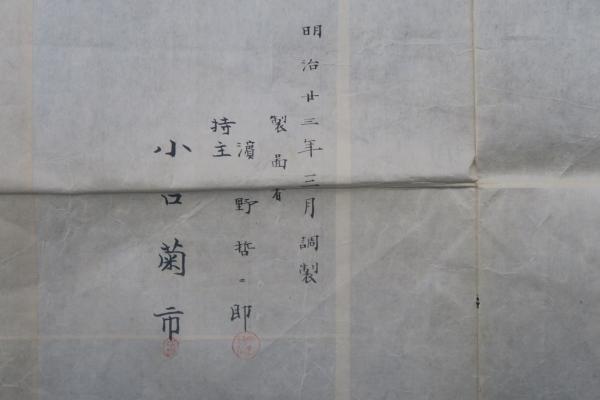 明治廿三年三月調製
製啚者
濵野哲二郎
持主
小吉菊市